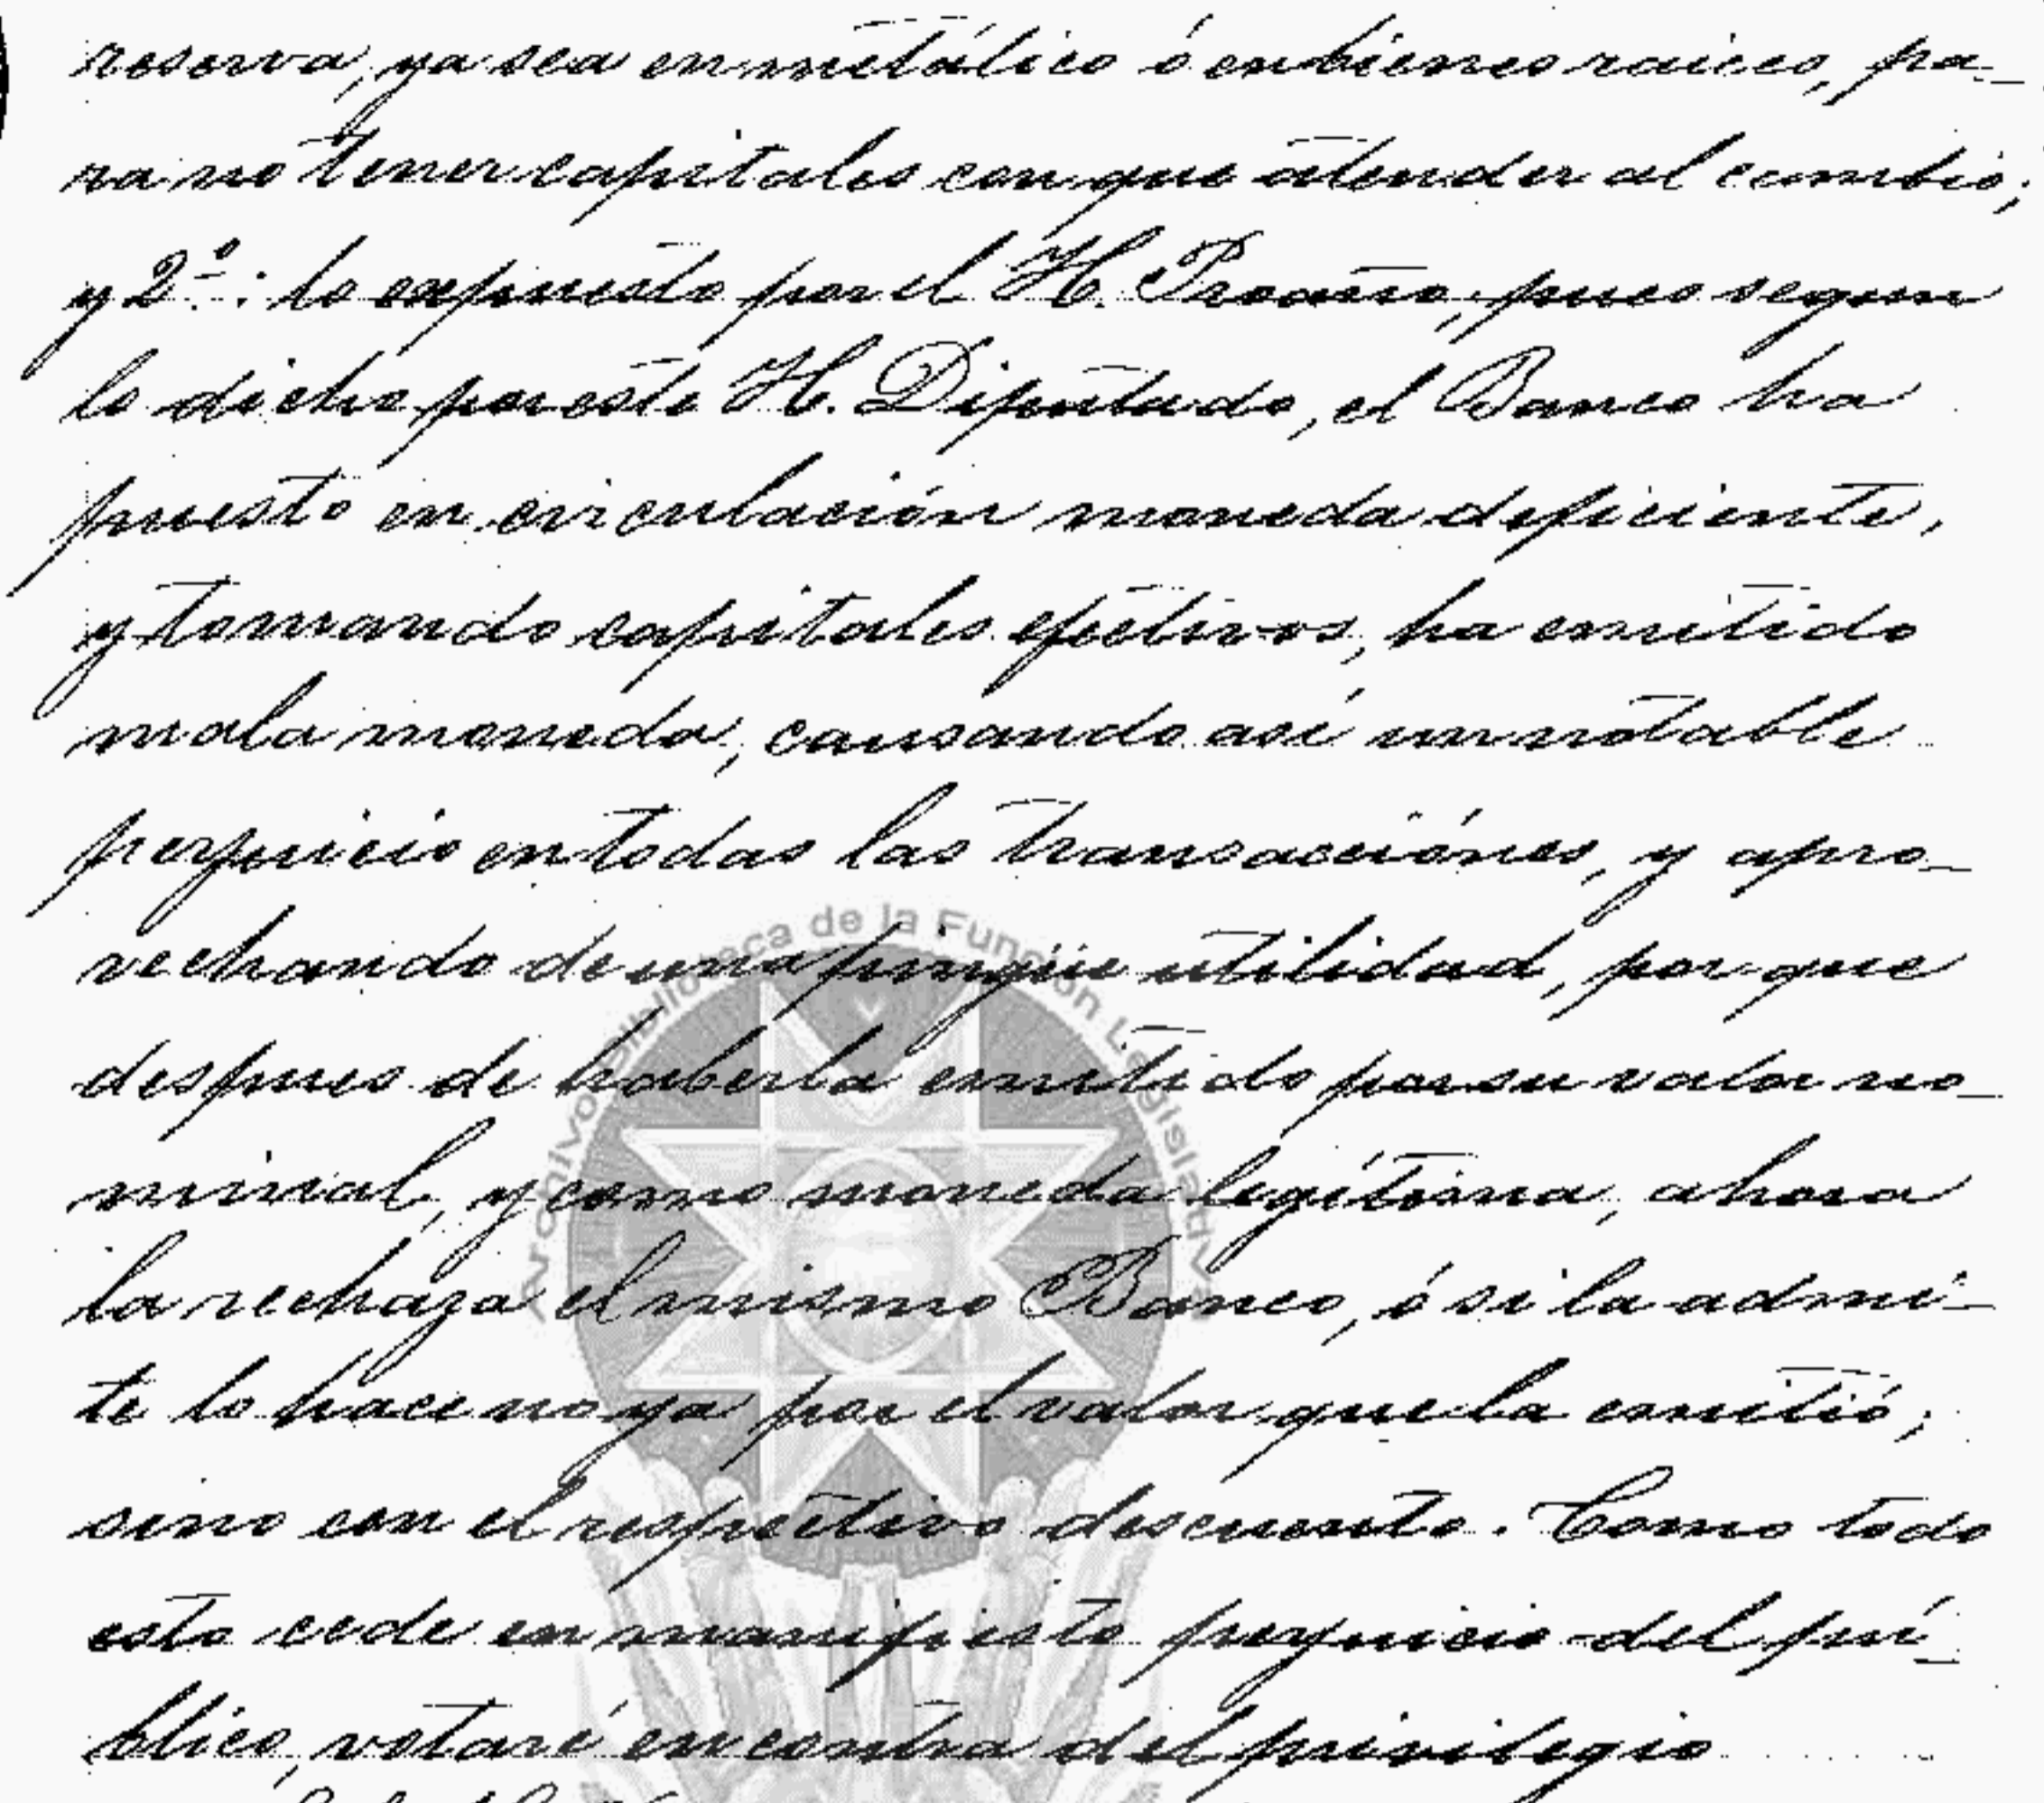 reserva, ya sea en metálico ó en bienes raices, pa-
ra no tener capitales con que atender al cambio;
y 2º: lo expuesto por el H. Proaño, pues segun
lo dicho por este H. Diputado, el Banco ha
puesto en circulación moneda deficiente,
y tomando capitales efectivos, ha emitido
mala moneda, causando así un notable
perjuicio en todas las transacciónes, y apro-
vechando de una pingüe utilidad, por que
despues de haberla emitido por su valor no-
minal, y como moneda legítima, ahora
la rechaza el mismo Banco, ó si la admi-
te lo hace no ya por el valor que la emitió;
sino con el respectivo descuento. Como todo
esto cede en manifiesto perjuicio del pú-
blico, votaré en contra del privilegio
Archivo Biblioteca de la Función Legislativa